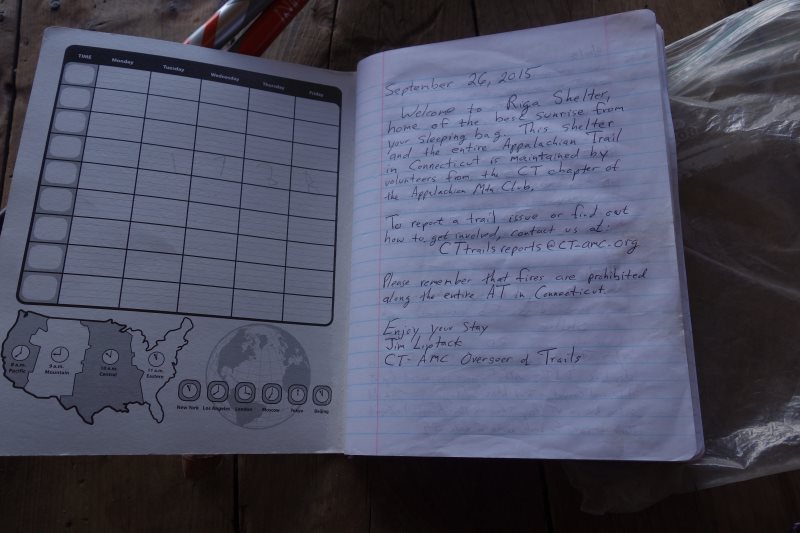 TIME Monday Tuesday Wednesday Thursday Friday
8 a.m. Pacific
9 a.m. Mountain
10 a.m. Central
11 a.m. Eastern
New York Los Angeles London Moscow Tokyo Beijing
September 26, 2015
Welcome to Riga Shelter,
home of the best sunrise from
your sleeping bag. This shelter
and the entire Appalachian Trail
in Connecticut is maintained by
volunteers from the CT chapter of
the Appalachian Mtn Club.
To report a trail issue or find out
how to get involved, contact us at:
CTtrailsreports@CT-amc.org
Please remember that fires are prohibited
along the entire AT in Connecticut.
Enjoy your stay
Jim Liptack
CT-AMC Overseer of Trails